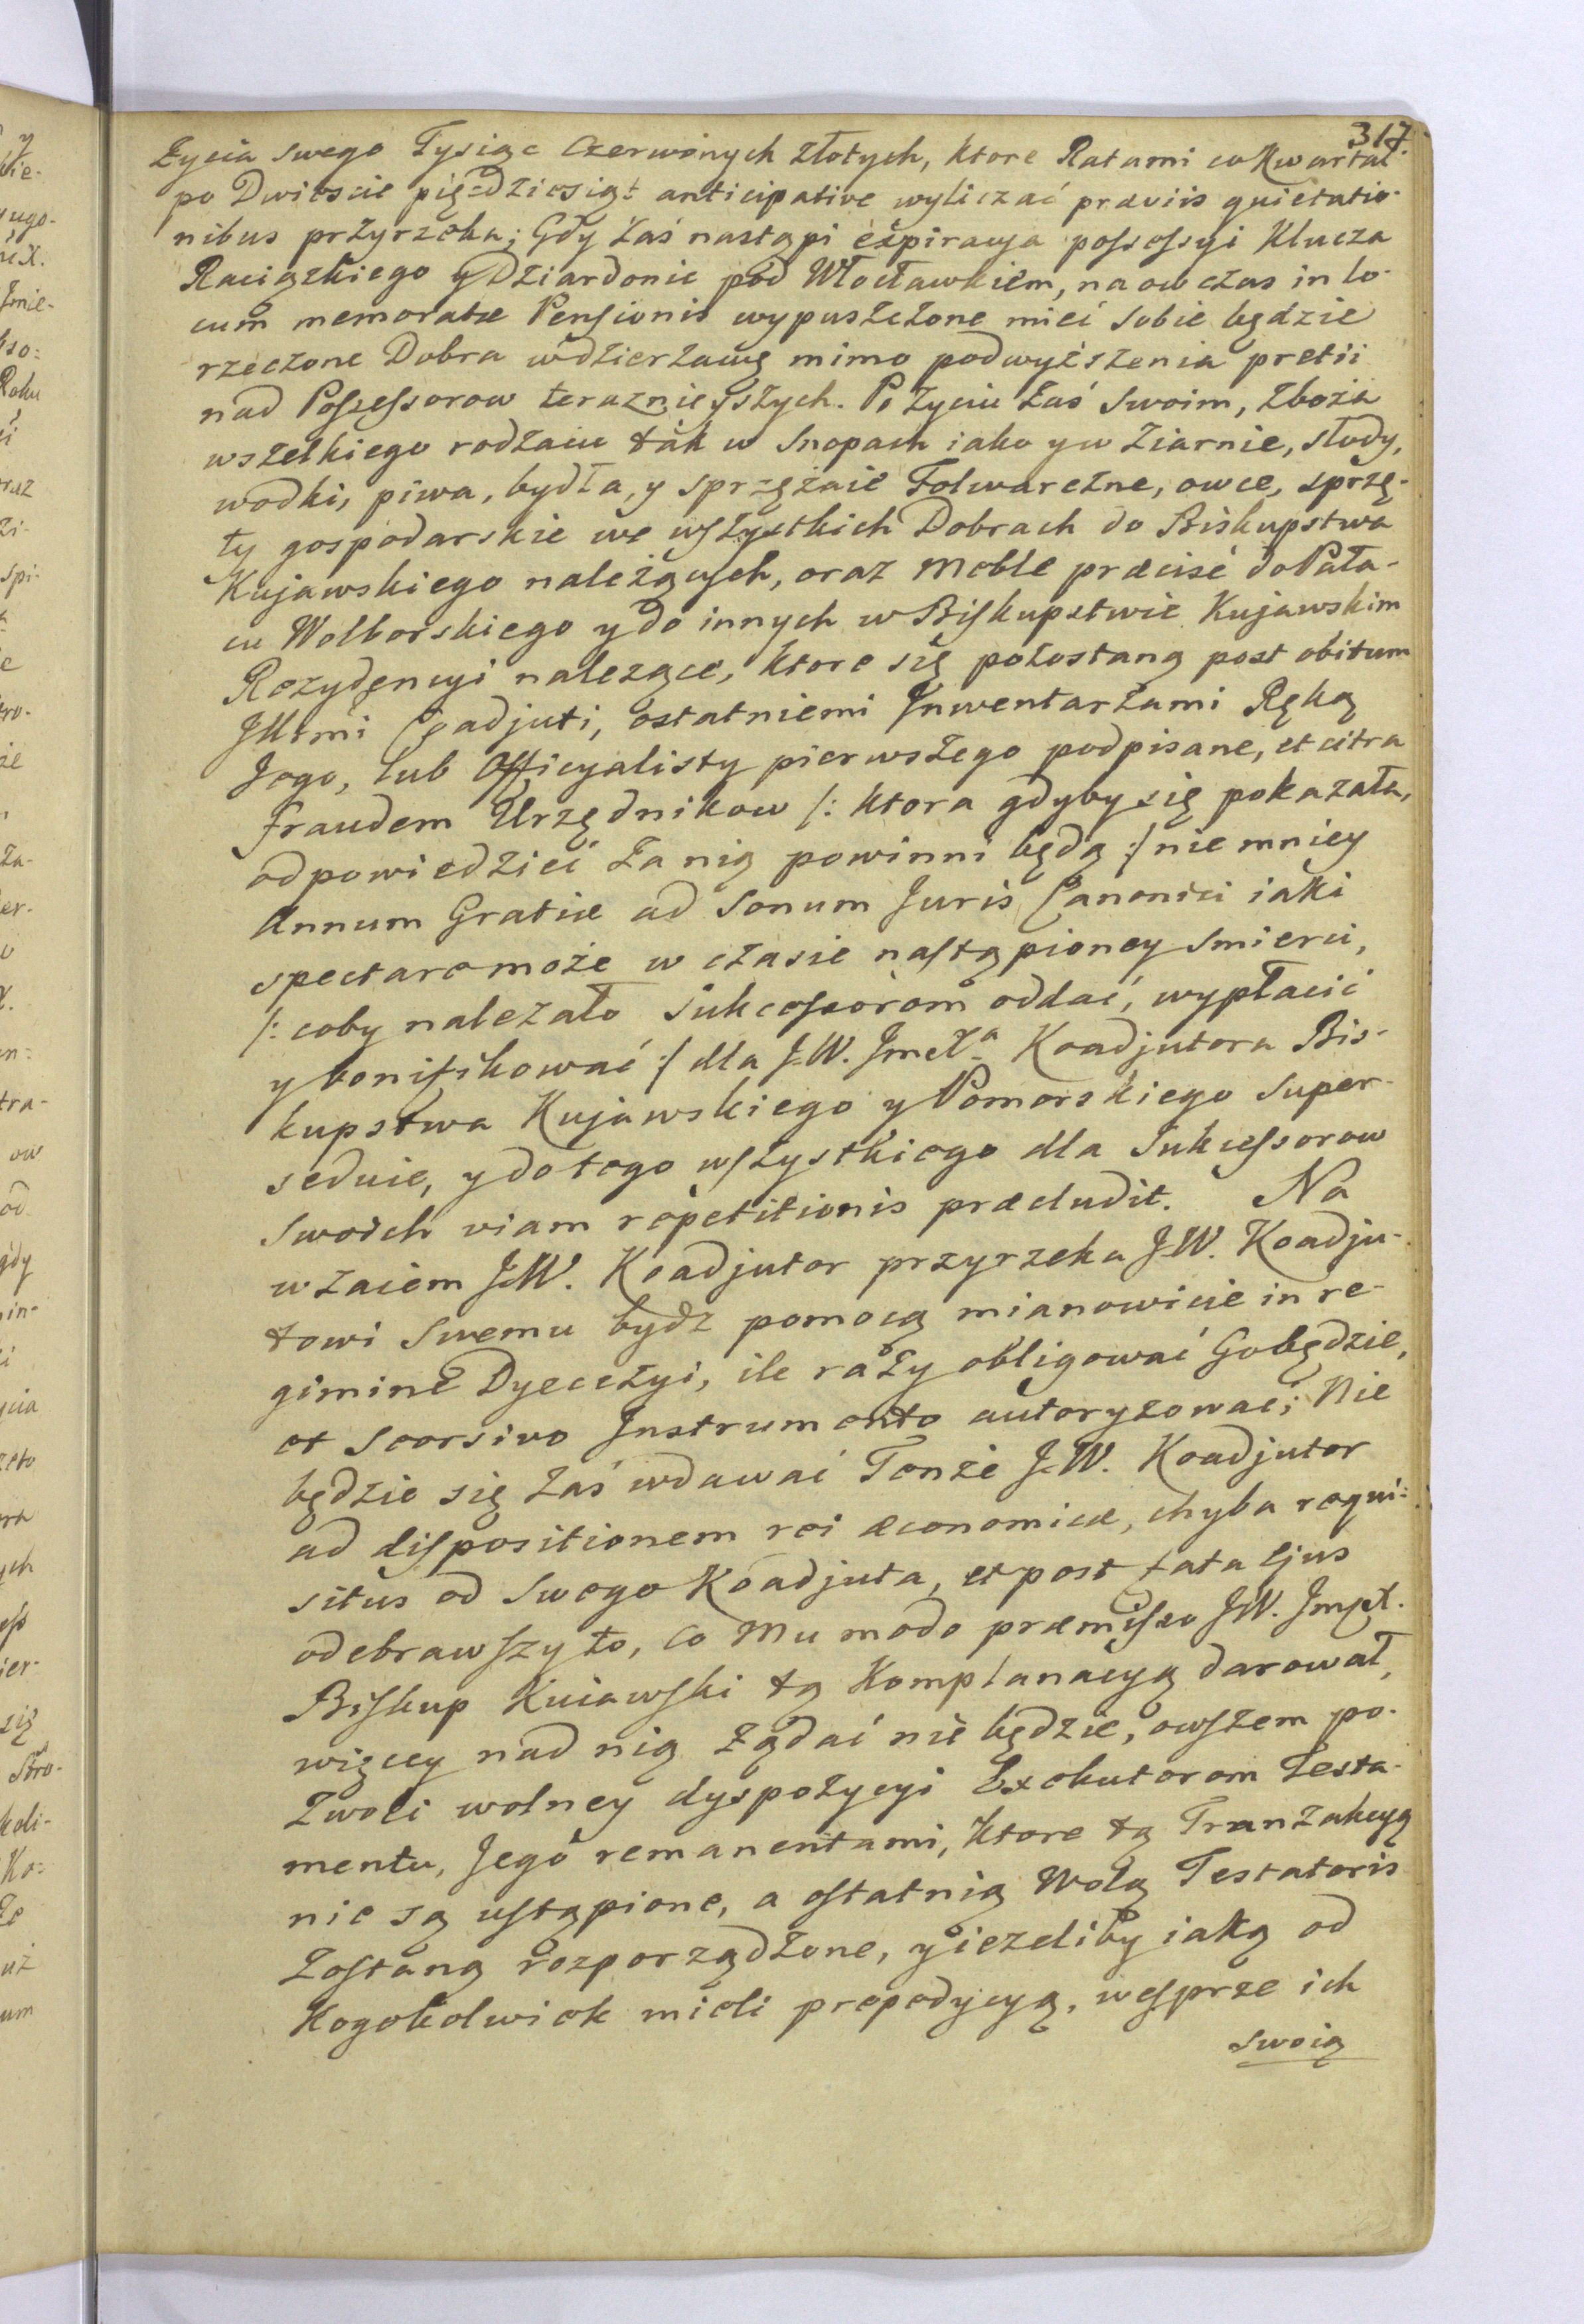 317.
Życia swego Tysiąc Czerwonych złotych, ktore Ratami co Kwartał
po Dwieście pięćdziesiąt anticipative wyliczać præviis quietatio-
nibus przyrzeka; Gdy zaś nastąpi expiracya possessyi Klucza
Raciązkiego y Dziardonie pod Włocławkiem, na ow czas in lo-
cum memoratæ Pensionis wypuszczone mieć sobie będzie
rzeczone Dobra w dzierzawę mimo podwyższenia pretii
nad Possessorow teraznieyszych. Po życiu zaś Swoim, zboża
wszelkiego rodzaiu tak w Snopach iako y w ziarnie, słody,
wodki, piwa, bydła, y sprzężaie Folwarczne, owce, sprzę-
ty gospodarskie we wszystkich Dobrach do Biskupstwa
Kujawskiego należących, oraz Meble præcise do Pała-
cu Wolborskiego y do innych w Biskupstwie Kujawskim
Rezydencyi nalezące, ktore się pozostaną post obitum
Illmi Coadjuti, ostatniemi Inwentarzami Ręką
Jego, lub Officyalisty pierwszego podpisane, et citra
fraudem Urzędnikow /: ktora gdyby się pokazała,
odpowiedzieć za nią powinni będą :/ nie mniey
Annum Gratiæ ad Sonum Juris Canonici iaki
spectare może w czasie nastąpioney smierci,
/: coby nalezało Sukcessorom oddać, wypłacić
y bonifikować :/ dla J.W. Jmcza Koadjutora Bis-
kupstwa Kujawskiego y Pomorskiego Super-
seduie, y do tego wszystkiego dla Sukcessorow
Swoich viam repetitionis præcludit. Na
wzaiem J.W. Koadjutor przyrzeka J.W. Koadju-
towi Swemu bydz pomocą mianowicie in re-
gimine Dyecezyi, ile razy obligować Go będzie,
et Seorsivo Instrumento autoryzować; Nie
będzie się zaś wdawać Tenże J.W. Koadjutor
ad dispositionem rei æconomicæ, chyba requi-
situs od Swego Koadjuta, et post fata Ejus
odebrawszy to, co Mu modo præmisso J.W. Jmct.
Biskup Kuiawski tą Komplanacyą darował,
więcey nad nią żądać nie będzie, owszem po-
zwoli wolney dyspozycyi Exekutorom Testa-
mentu, Jego remanentami, ktore tą Tranzakcyą
nie są ustąpione, a ostatnią Wolą Testatoris
zostaną rozporządzone, y ieżeliby iaką od
Kogokolwiek mieli prepedycyą, wesprze ich
swoią